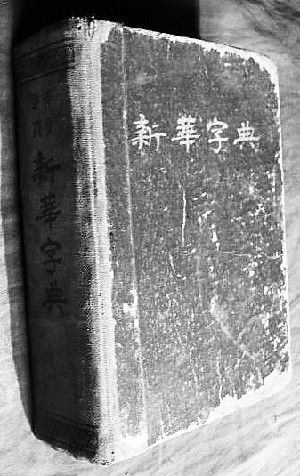 新華字典
新華字典